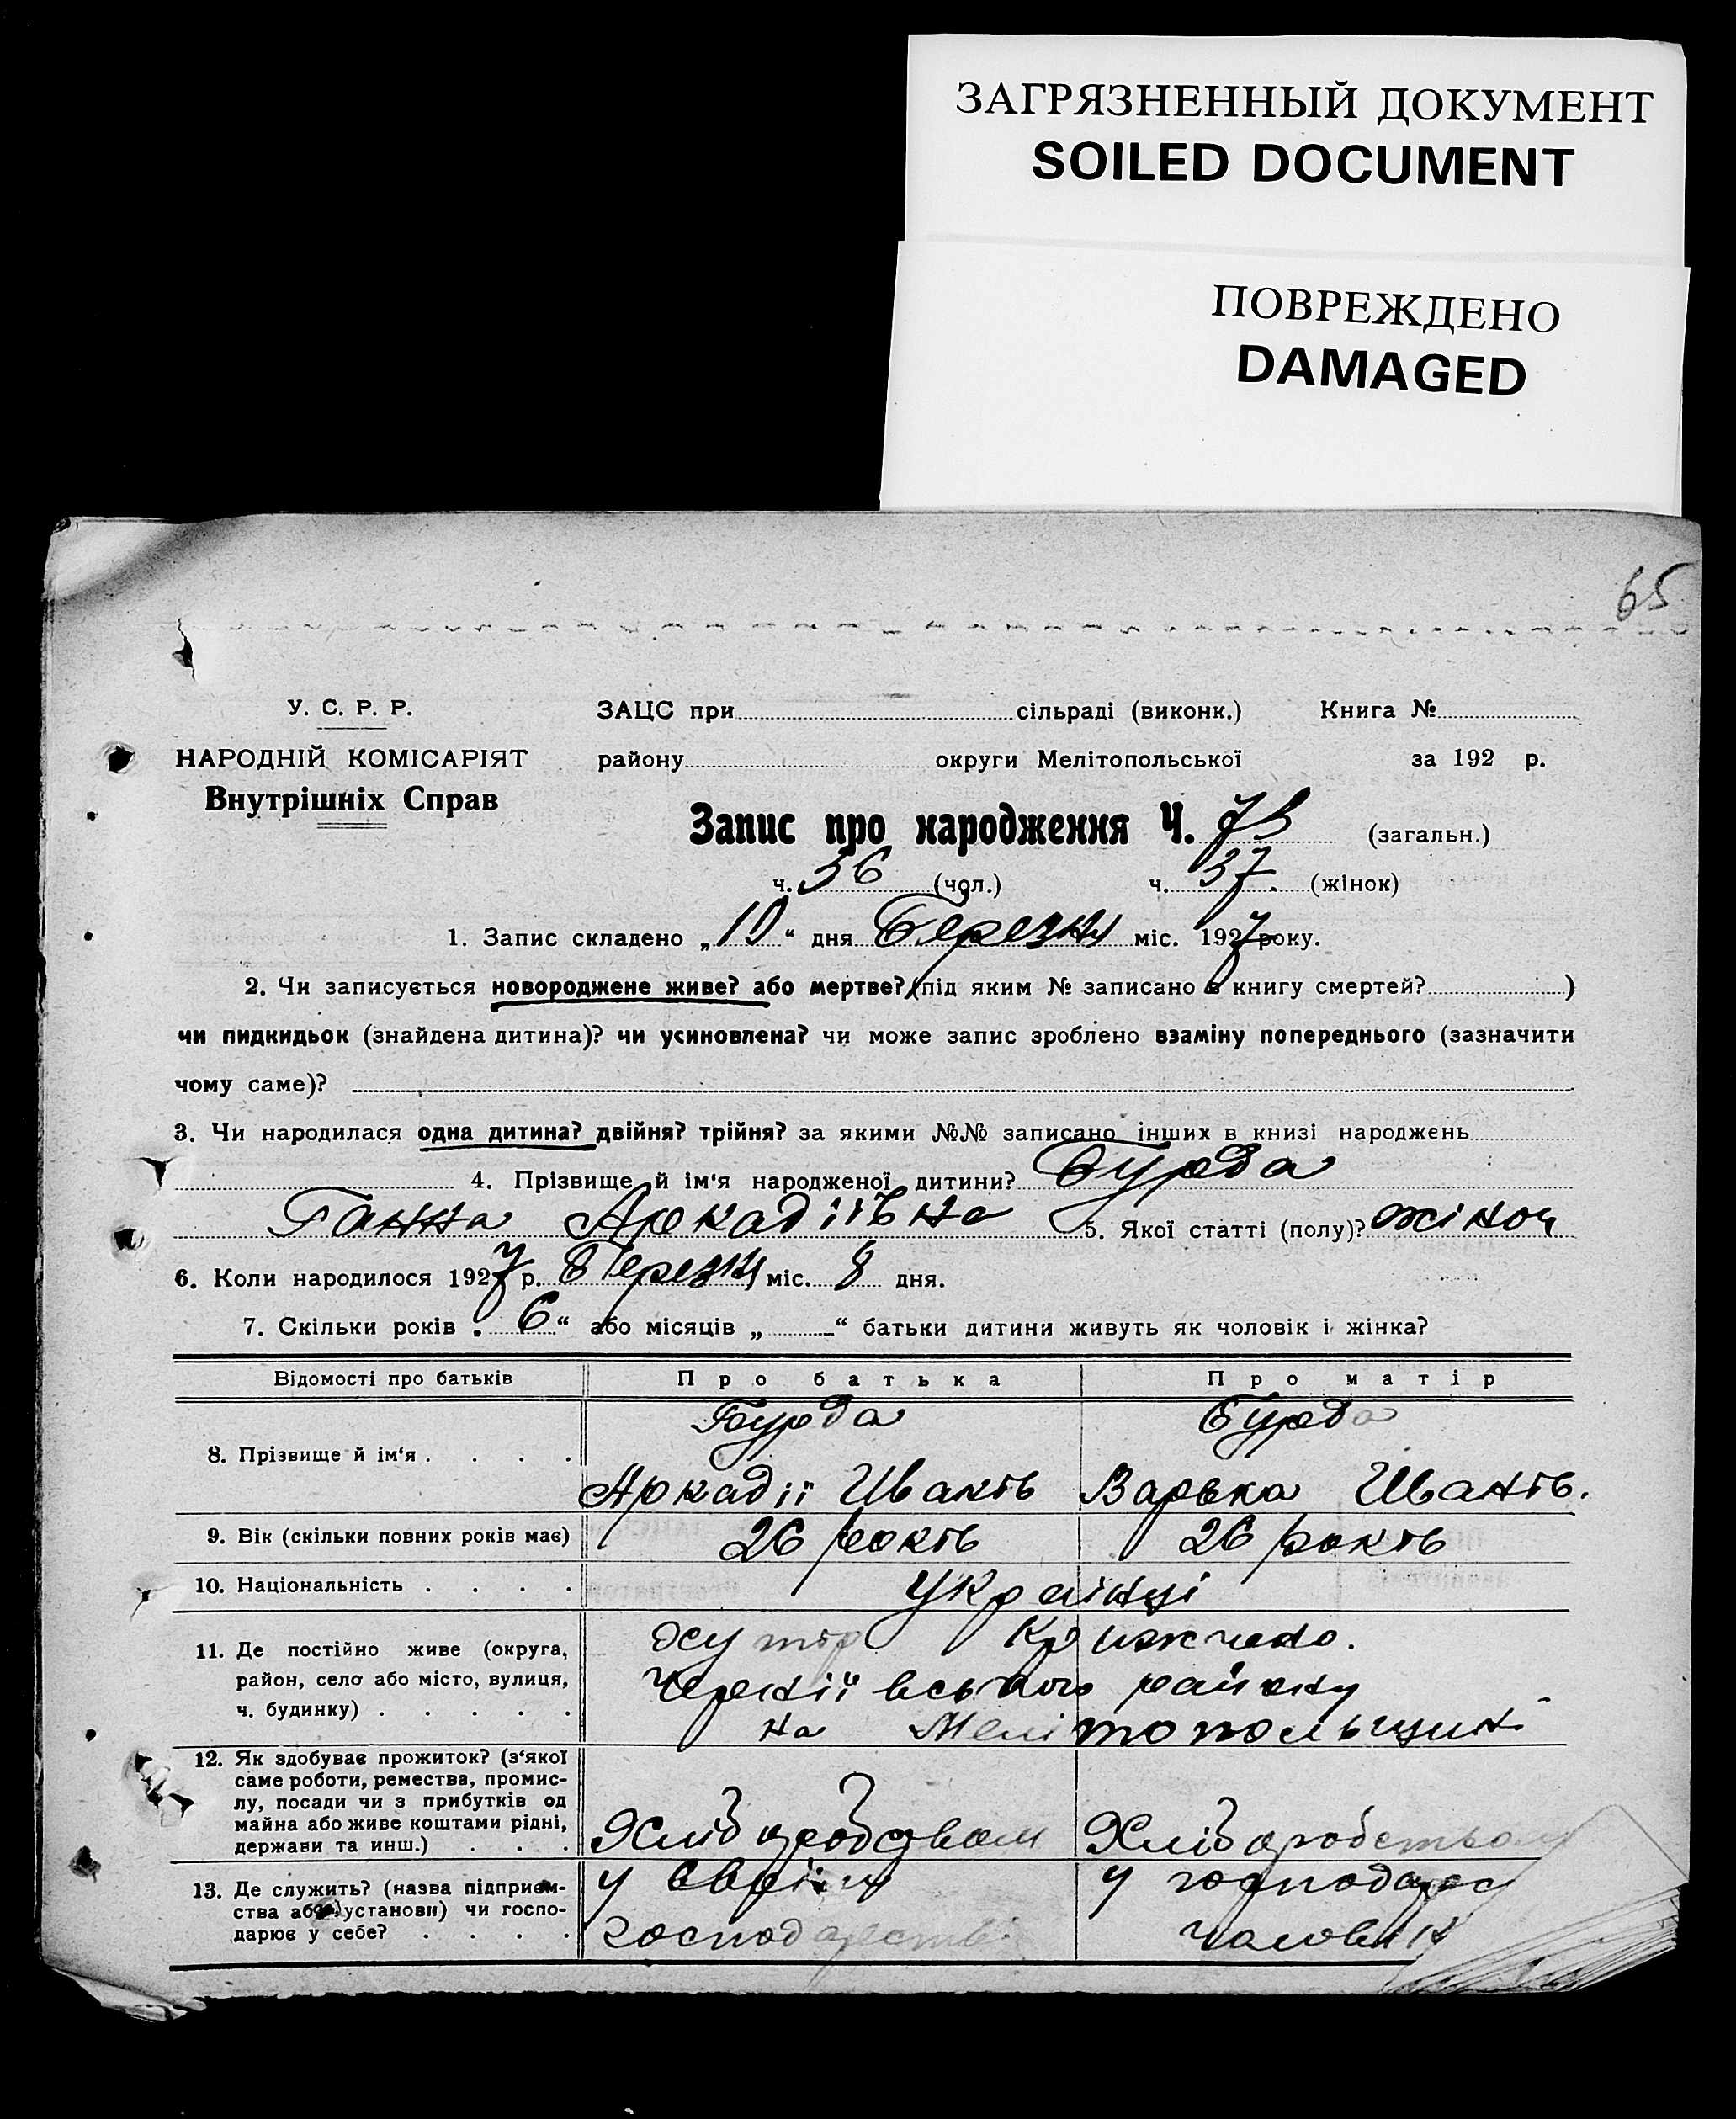 ЗАГРЯЗНЕННЫЙ ДОКУМЕНТ
SOILED DOCUMENT
ПОВРЕЖДЕНО
DAMAGED
65
У. С. Р. Р. ЗАЦС при сільраді (виконк.) Книга №
НАРОДНІЙ КОМІСАРІЯТ району округи Мелітопольської за 192 р.
Внутрішніх Справ
Запис про народження Ч. 73 (загальн.)
ч. 36 (чол.) ч. 37. (жінок)
1. Запис складено „10“ дня Березня міс. 1927 року.
2. Чи записується новороджене живе? або мертве? (під яким № записано в книгу смертей? )
чи пидкидьок (знайдена дитина)? чи усиновлена? чи може запис зроблено взаміну попереднього (зазначити
чому саме)?
3. Чи народилася одна дитина? двійня? трійня? за якими №№ записано інших в книзі народжень
4. Прізвище й ім'я народженої дитини? Бурда
Ганна Аркадіївна 5. Якої статті (полу)? жіноч
6. Коли народилося 1927 р. Березня міс. 8 дня.
7. Скільки років „6“ або місяців „ “ батьки дитини живуть як чоловік і жінка?
Відомості про батьків Про батька Про матір
Бурда Бурда
8. Прізвище й ім'я . . . .
Аркадії Іванів Варька Іванів.
9. Вік (скільки повних років має) 26 років 26 років
10. Національність . . . . Українці
11. Де постійно живе (округа, хутір
район, село або місто, вулиця, району
ч. будинку) . . . . . на Мелітопольщині
12. Як здобуває прожиток? (з'якої
саме роботи, ремества, промис-
лу, посади чи з прибутків од
майна або живе коштами рідні,
держави та инш.) . . . Хліборобством Хліборобством
13. Де служить? (назва підприєм- у своїм у господарс
ства або установи) чи госпо-
дарює у себе? . . . . господарстві чоловіка